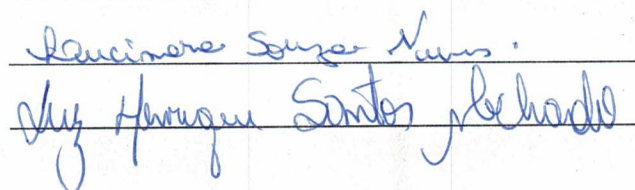 Laucimara Souza Nunes.
Luiz Henrique Santos Machado